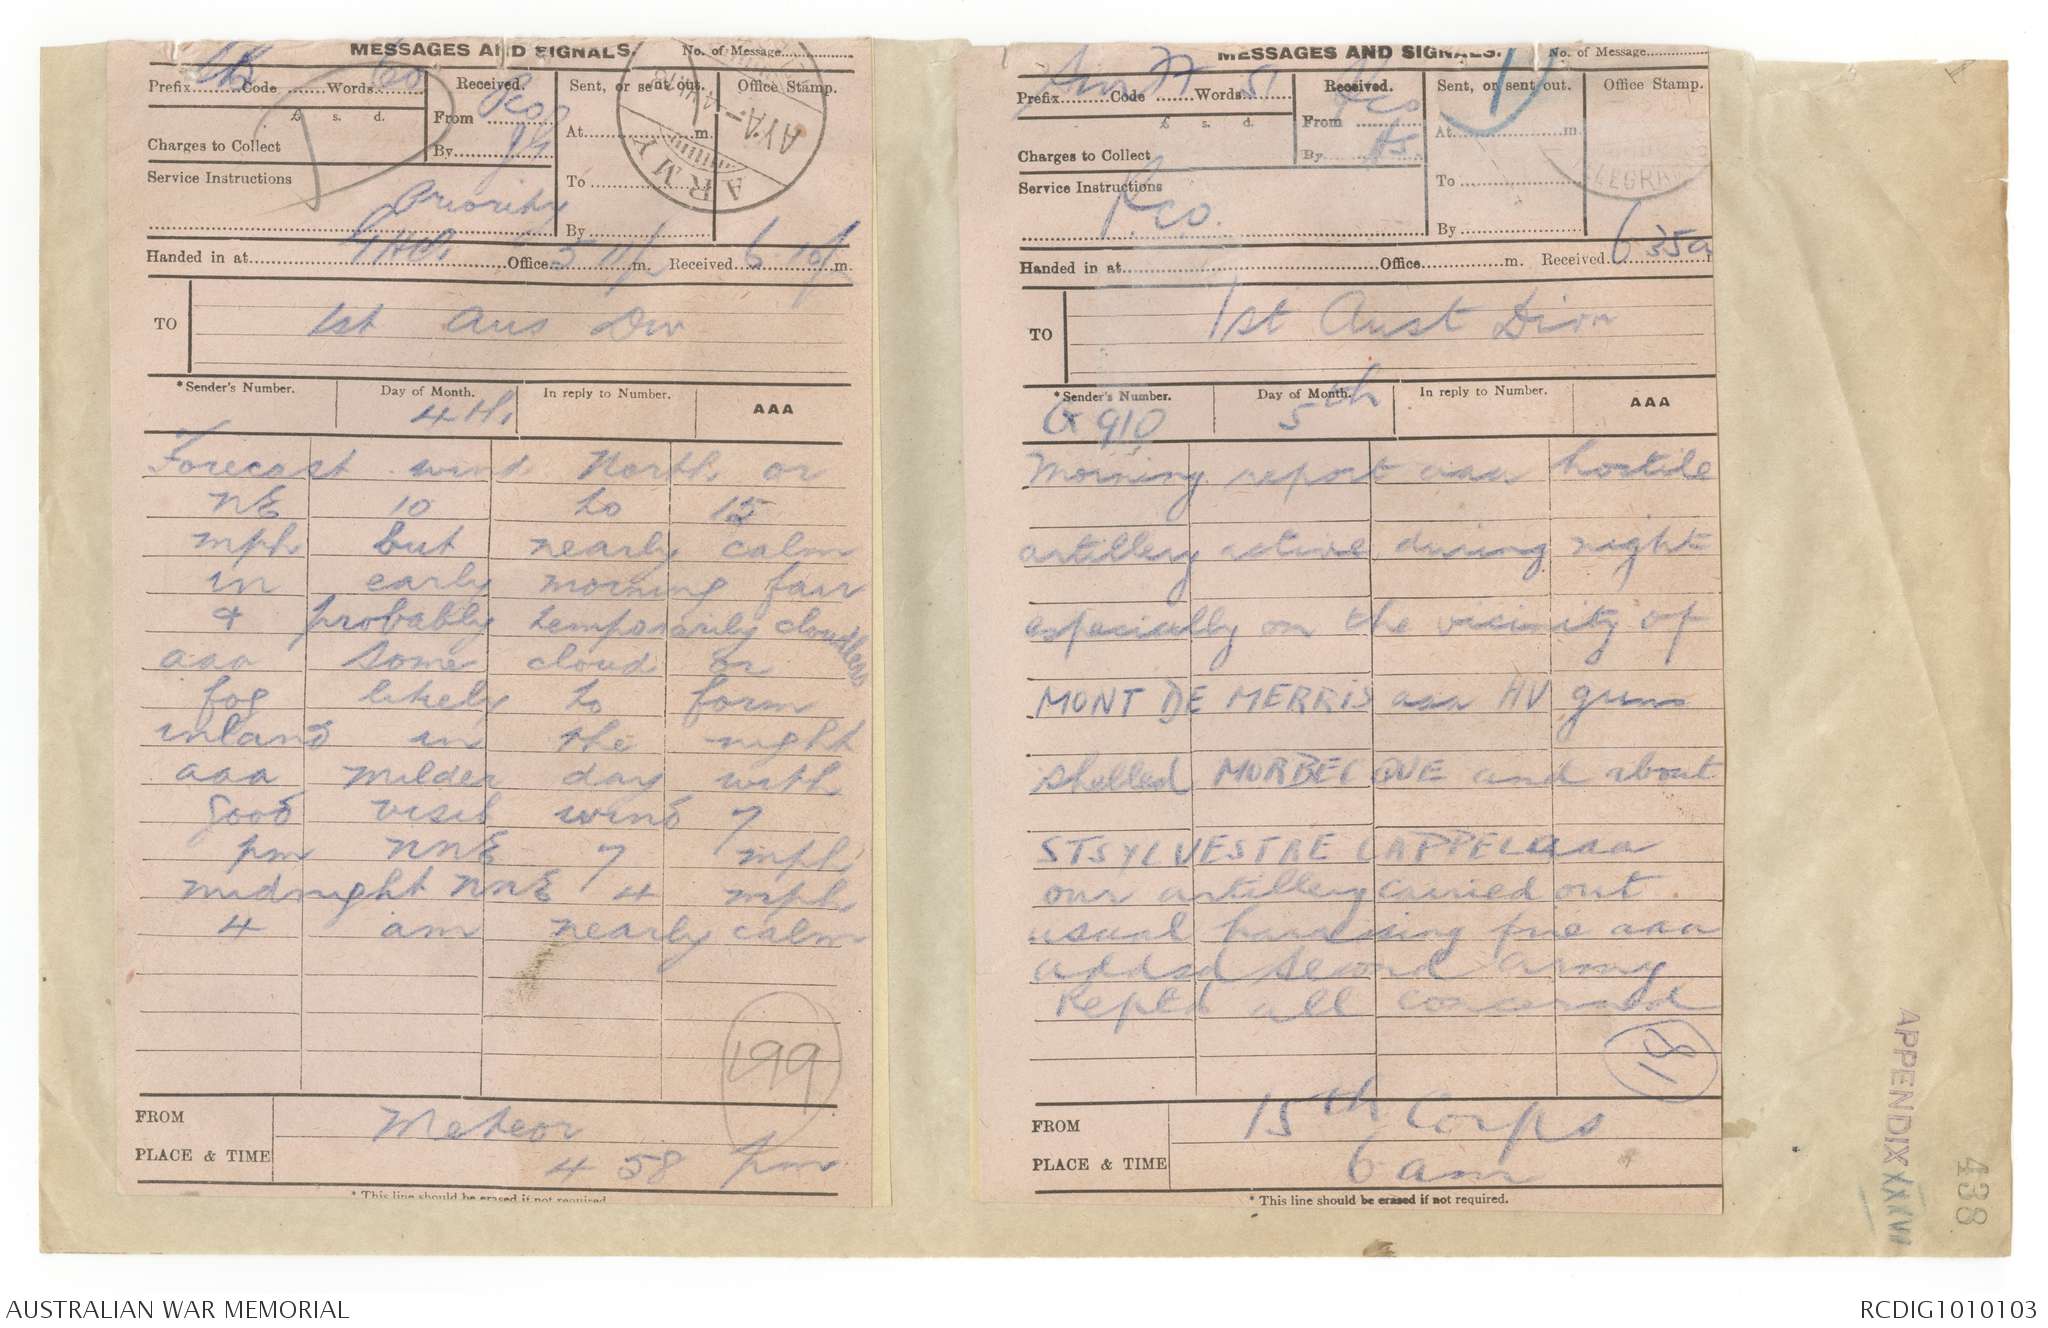 MESSAGES AND SIGNALS.
No. of Message
Prefix Code Words 60
£ s. d.
Charges to Collect
Service Instructions
Priority
Received.
From
By
Sent, or sent out.
At m.
To
By
Office Stamp.
ARMY
Handed in at Office 5 11/ m. Received 6 10/ m.
TO 1st Aus Div
*Sender's Number.
Day of Month. 4th
In reply to Number.
AAA
Forecast wind North or
NE 10 to 15
mph but nearly calm
in early morning fair
& probably temporarily cloudless
aaa some cloud or
fog likely to form
inland in the night
aaa milder day with
good visib wind 7
pm NNE 7 mph
midnight NNE 4 mph
4 am nearly calm
199
FROM Meteor
PLACE & TIME 4 58 pm
* This line should be erased if not required.
MESSAGES AND SIGNALS.
No. of Message
Prefix Code Words 51
£ s. d.
Charges to Collect
Service Instructions
Received.
From
By
Sent, or sent out.
At m.
To
By
Office Stamp.
Handed in at Office m. Received 6 35a
TO 1st Aust Divn
*Sender's Number. G 910
Day of Month. 5th
In reply to Number.
AAA
Morning report aaa hostile
artillery active during night
especially on the vicinity of
MONT DE MERRIS aaa HV guns
shelled MORBECQUE and about
ST SYLVESTRE CAPPEL aaa
our artillery carried out
usual harassing fire aaa
added second army
Reptd all concerned
18
FROM 15th Corps
PLACE & TIME 6 am
* This line should be erased if not required.
438
AUSTRALIAN WAR MEMORIAL
RCDIG1010103